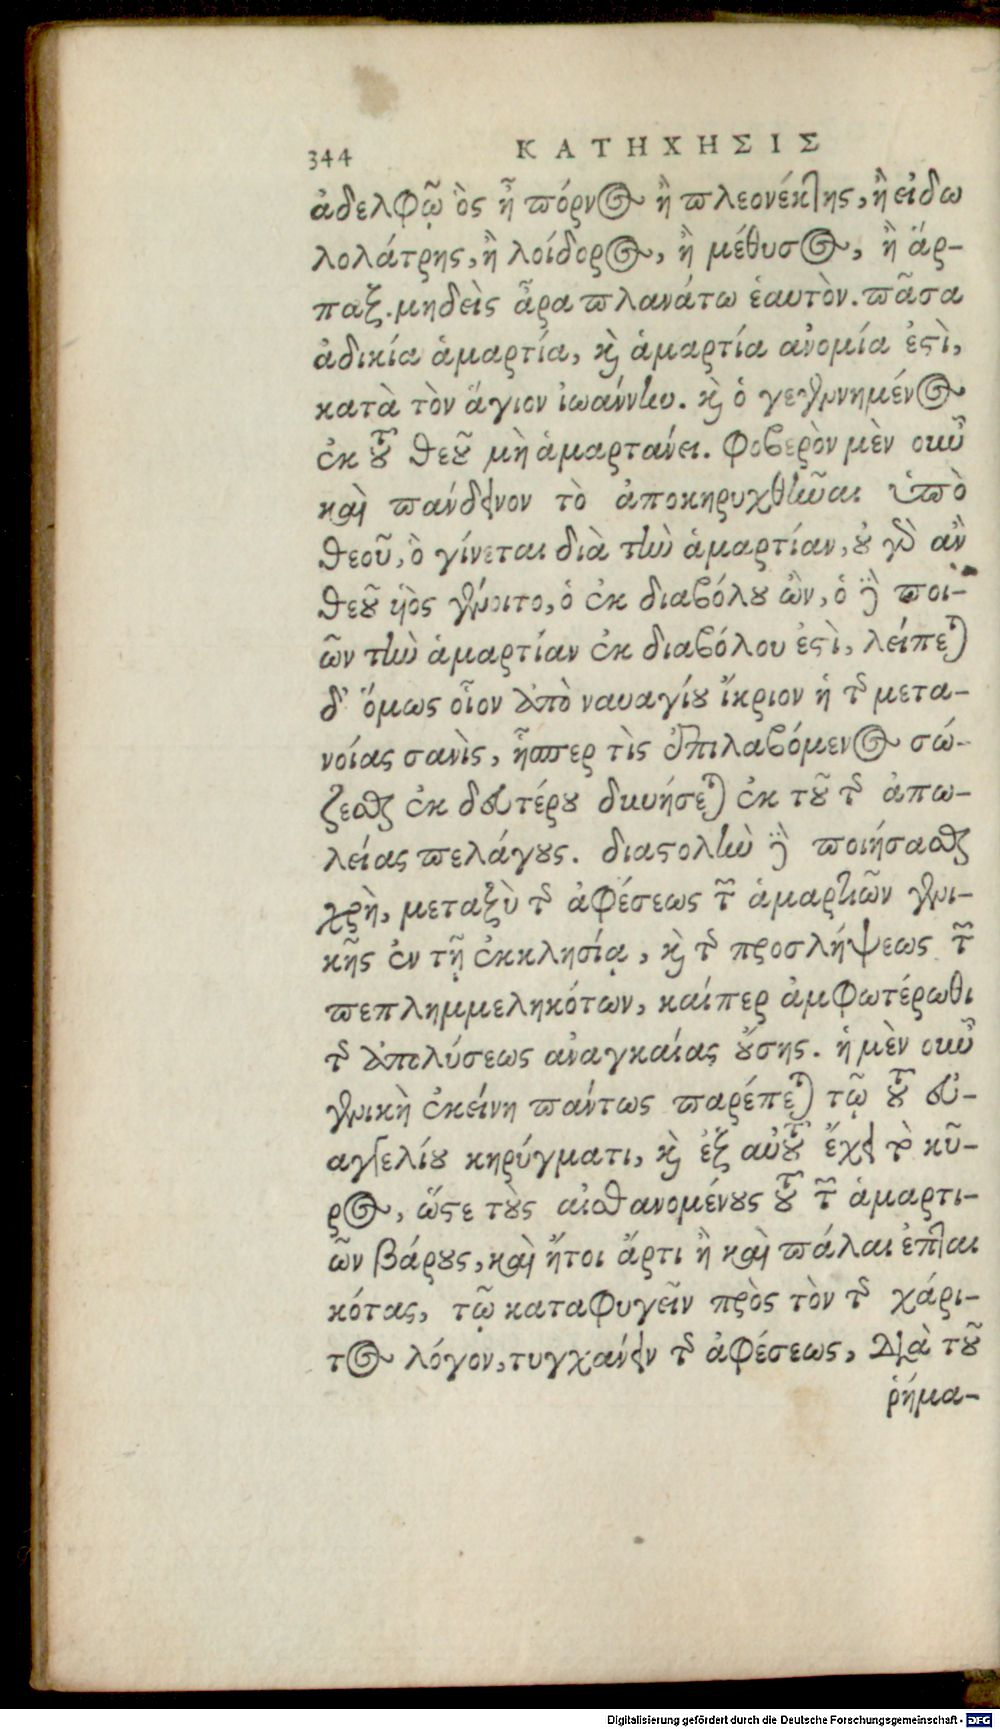 344 ΚΑΤΗΧΗΣΙΣ
ἀδελφῷ ὃς ἦ πόρνος ἢ πλεονέκτης, ἢ εἰδω
λολάτρης, ἢ λοίδορος, ἢ μέθυσος, ἢ ἅρ-
παξ. μηδεὶς ἆρα πλανάτω ἑαυτὸν. πᾶσα
ἀδικία ἁμαρτία, καὶ ἁμαρτία ἀνομία ἐστὶ,
κατὰ τὸν ἅγιον ἰωάννην. καὶ ὁ γεγεννημένος
ἐκ τοῦ θεοῦ μὴ ἁμαρτάνει. Φοβερὸν μὲν οὖν
καὶ πάνδεινον τὸ ἀποκηρυχθῆναι ὑπὸ
θεοῦ, ὃ γίνεται διὰ τὴν ἁμαρτίαν, οὐ γὰρ ἂν
θεοῦ ὑὸς γένοιτο, ὁ ἐκ διαβόλου ὢν, ὁ δὲ ποι-
ῶν τὴν ἁμαρτίαν ἐκ διαβόλου ἐστὶ, λείπεται
δ' ὅμως οἷον ἀπὸ ναυαγίου ἴκριον ἡ τῆς μετα-
νοίας σανὶς, ἧσπερ τὶς ἐπιλαβόμενος σώ-
ζεσθαι ἐκ δευτέρου δυνήσεται ἐκ τοῦ τῆς ἀπω-
λείας πελάγους. διαστολὴν δὲ ποιήσασθαι
χρὴ, μεταξὺ τῆς ἀφέσεως τῶν ἁμαρτιῶν γενι-
κῆς ἐν τῇ ἐκκλησίᾳ, καὶ τῆς προσλήψεως τῶν
πεπλημμεληκότων, καίπερ ἀμφωτέρωθι
τῆς ἀπολύσεως ἀναγκαίας οὔσης. ἡ μὲν οὖν
γενικὴ ἐκείνη πάντως παρέπεται τῷ τοῦ εὐ-
αγγελίου κηρύγματι, καὶ ἐξ αὐτοῦ ἔχει τὸ κῦ-
ρος, ὥστε τοὺς αἰσθανομένους τοῦ τῶν ἁμαρτι-
ῶν βάρους, καὶ ἤτοι ἄρτι ἢ καὶ πάλαι ἐπται
κότας, τῷ καταφυγεῖν πρὸς τὸν τῆς χάρι-
τος λόγον, τυγχάνειν τῆς ἀφέσεως, διὰ τοῦ
ῥήμα-
Digitalisierung gefördert durch die Deutsche Forschungsgemeinschaft - DFG